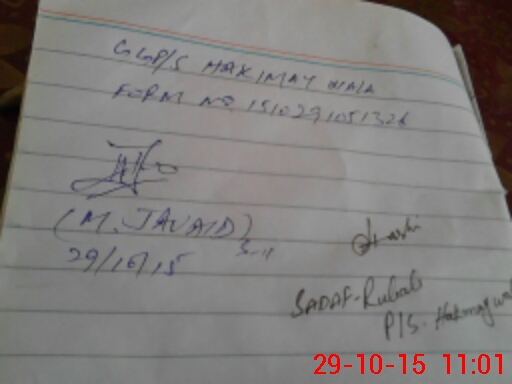 GGP/S HAKIMAY WALA
FORM NO. 1510291051326
(M. JAVAID)
29/10/15
SADAF-Rubab
P/S. Hakmaywal
29-10-15 11:01